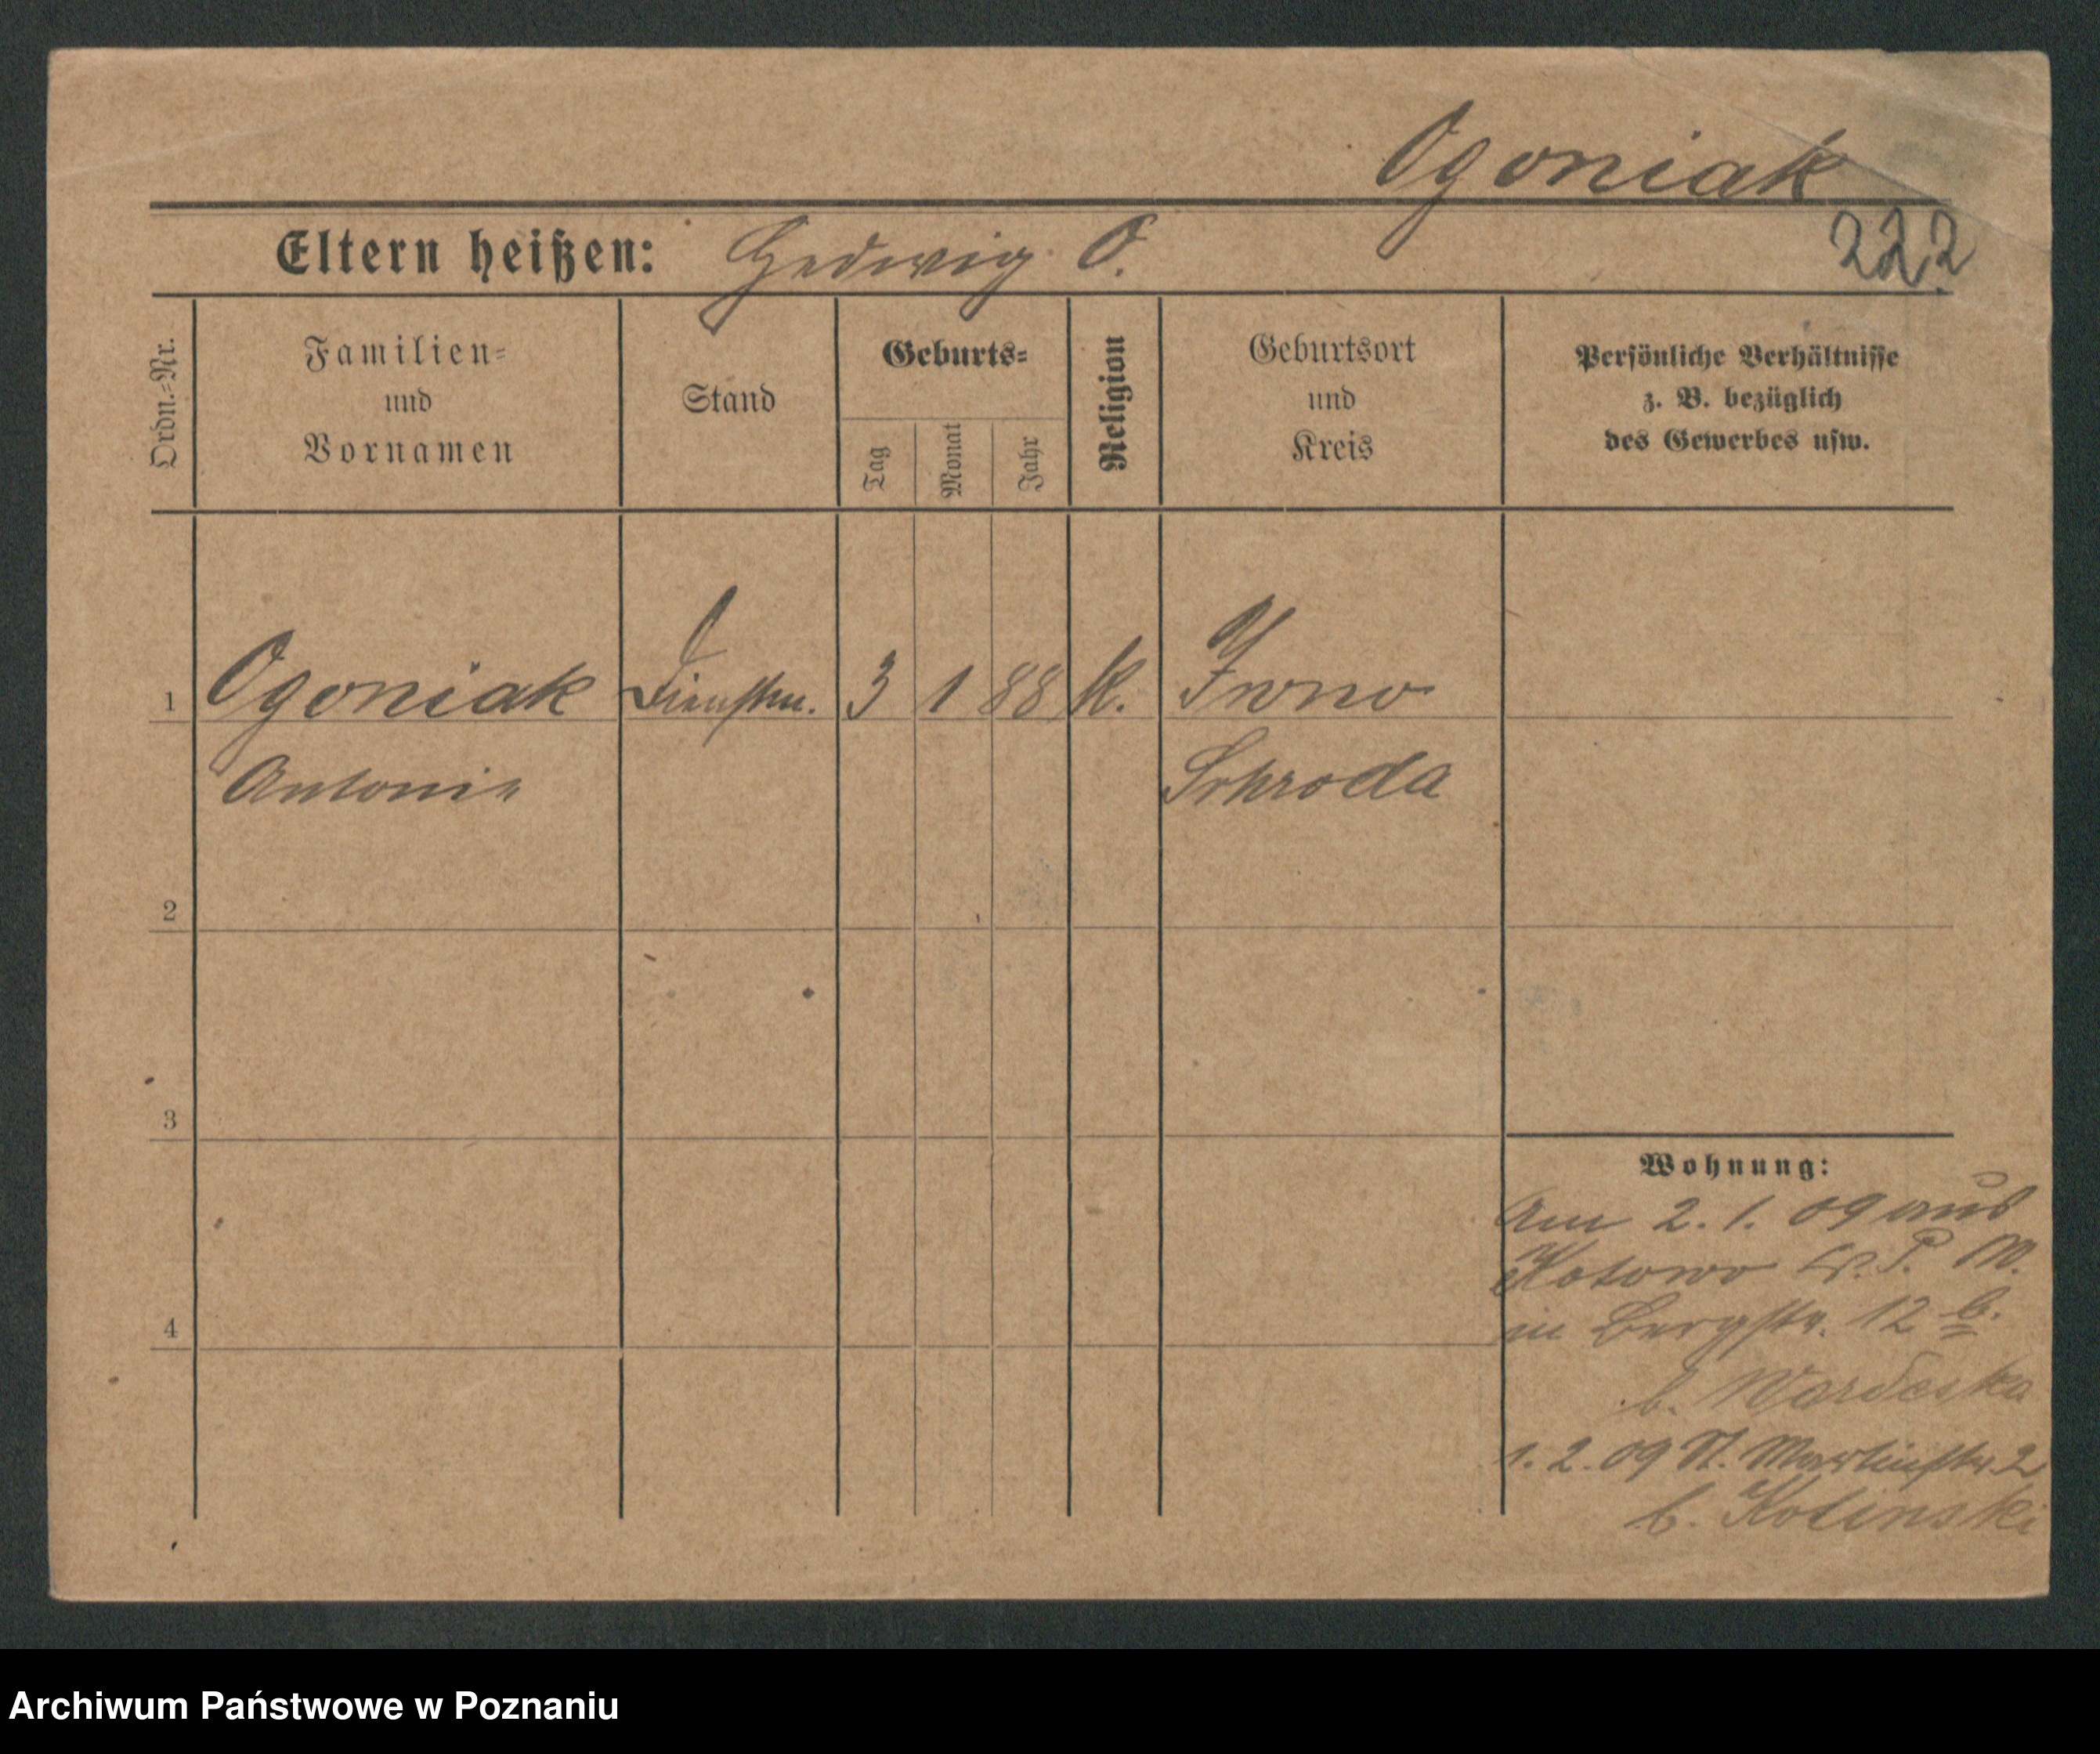 Ogoniak
222
Eltern heißen: Hedwig O.
Ordn.-Nr.
Familien-
und
Vornamen
Stand
Geburts-
Tag
Monat
Jahr
Religion
Geburtsort
und
Kreis
Persönliche Verhältnisse
z. B. bezüglich
des Gewerbes usw.
1 Ogoniak Dienstm. 3 1 88 K. Iwno
Antonie Schroda
2
3
4
Wohnung:
Am 2. 1. 09 aus
Kotowo P. M.
in Bergstr. 12 b.
b. Wardeska
1. 2. 09 St. Martinstr. 2
b. Kolinski
Archiwum Państwowe w Poznaniu